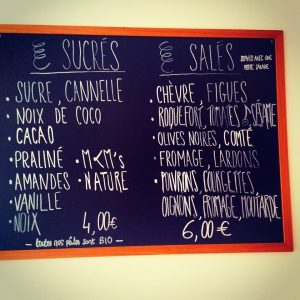 SUCRÉS
SUCRE, CANNELLE
• NOIX DE COCO
CACAO
• PRALINÉ • M&M's
• AMANDES • NATURE
• VANILLE
• NOIX 4,00€
- toutes nos pâtes sont BIO -
SALÉS
SERVIES AVEC UNE
PETITE SALADE
• CHÈVRE, FIGUES
• ROQUEFORT, TOMATES & SÉSAME
• OLIVES NOIRES, COMTÉ
• FROMAGE, LARDONS
• POIVRONS, COURGETTES,
OIGNONS, FROMAGE, MOUTARDE
6,00€